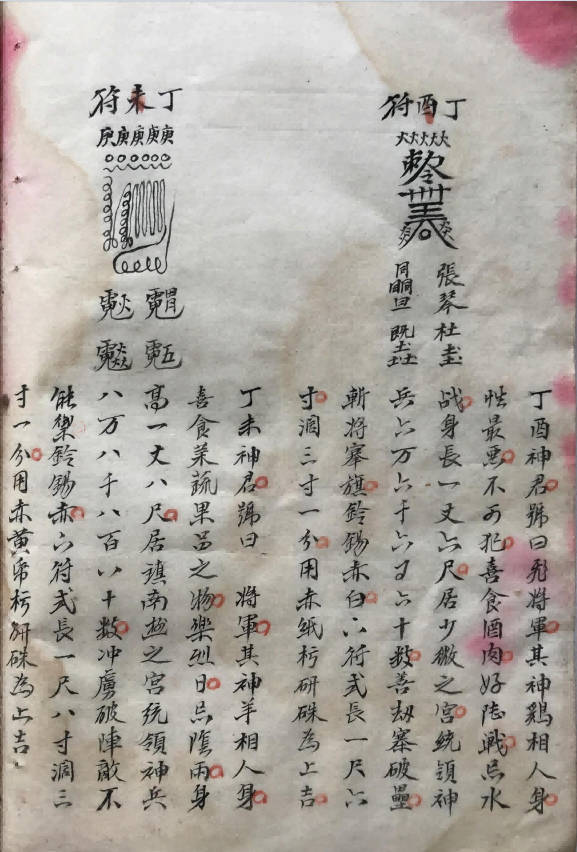 丁酉符
張琴杜
丁酉神君號曰飛將軍其神鷄相人身
性最惡不可犯喜食酒肉好陸戰忌水
战身長一丈六尺居少微之宮統領神
兵六万六千六百六十數善刼寨破壘
斬將搴旗鈴錫赤白六符式長一尺六
寸濶三寸一分用赤紙杇研硃為上吉
丁未符
庚庚庚庚庚
丁未神君號曰 將軍其神羊相人身
喜食菜蔬果品之物樂烈日忌陰雨身
高一丈八尺居鎮南極之宮統領神兵
八万八千八百八十數冲虜破陣敵不
能禦鈴錫赤六符式長一尺八寸濶三
寸一分用赤黄帋杇研硃為上吉